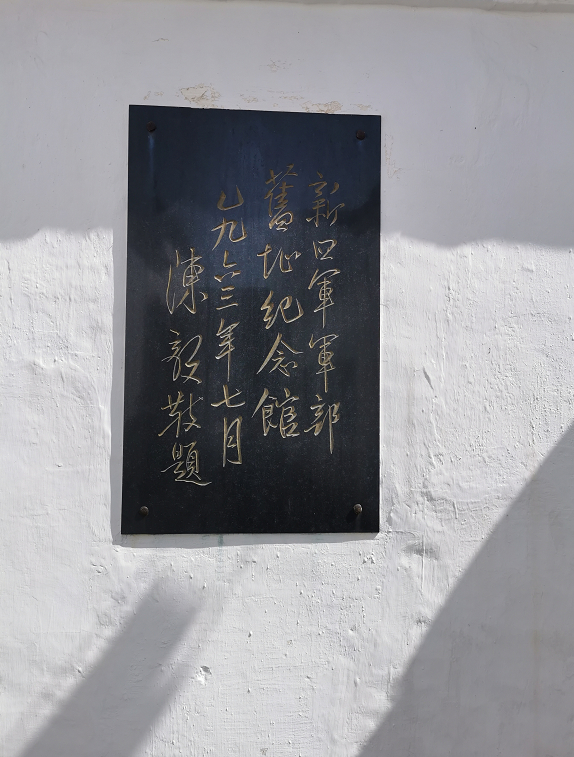 新四軍軍部
舊址紀念館
一九六三年七月
陳毅敬題